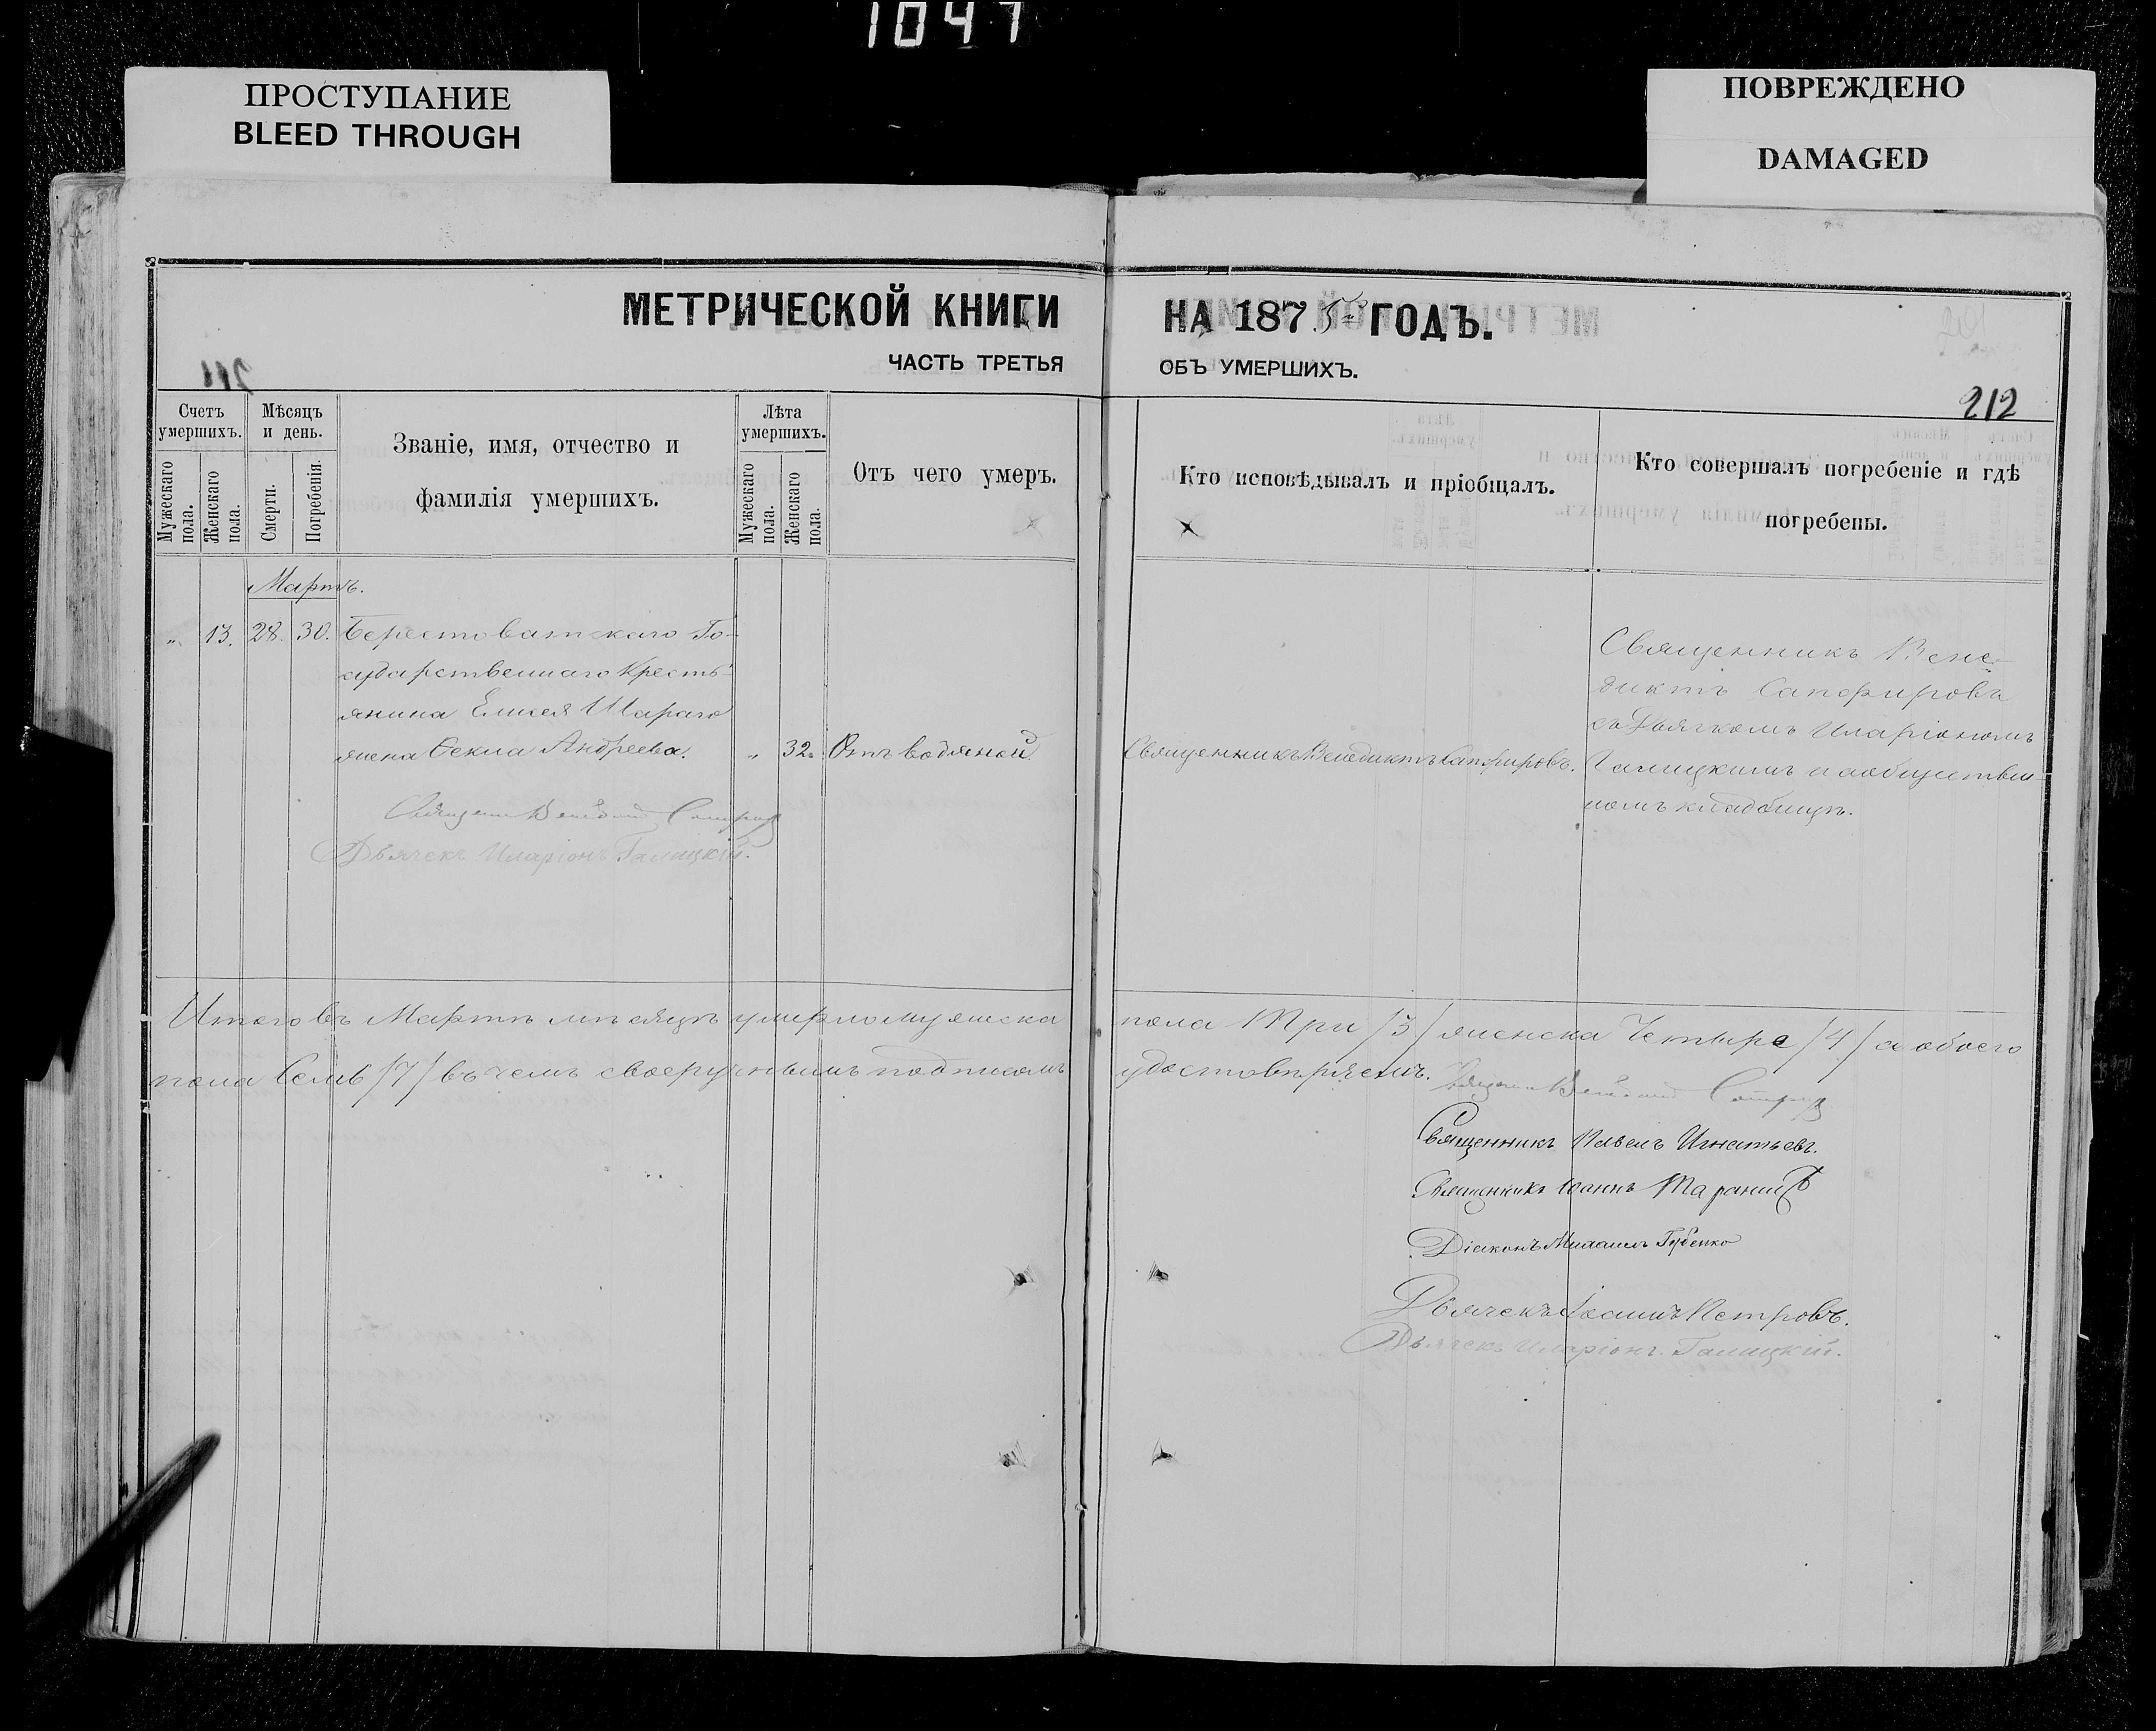 1047
ПРОСТУПАНИЕ
BLEED THROUGH
ПОВРЕЖДЕНО
DAMAGED
МЕТРИЧЕСКОЙ КНИГИ
НА 1875 ГОДЪ.
ЧАСТЬ ТРЕТЬЯ
ОБЪ УМЕРШИХЪ.
211
212
Счетъ умершихъ.
Мужескаго пола.
Женскаго пола.
Мѣсяцъ и день.
Смерти.
Погребенія.
Званіе, имя, отчество и
фамилія умершихъ.
Лѣта умершихъ.
Мужескаго пола.
Женскаго пола.
Отъ чего умеръ.
Кто исповѣдывалъ и пріобщалъ.
Кто совершалъ погребеніе и гдѣ
погребены.
Мартъ.
„ 13. 28. 30. Берестоватскаго Го-
сударственнаго Кресть-
янина Елисея Шараго
жена Ѳекла Андреева. „ 32. Отъ водяной
Священникъ Венедиктъ Сапфировъ.
Священникъ Вене-
диктъ Сапфировъ
съ Дьячкомъ Иларіономъ
Галицкимъ на обществен-
номъ кладбищѣ.
Священ Венедикт Сапфиров
Дьячекъ Иларіонъ Галицкій.
Итого въ Мартѣ мѣсяцѣ умерло мужеска пола Три /3/ женска Четыре /4/ а обоего
пола Семь /7/ въ чемъ своеручнымъ подписомъ удостовѣряемъ.
Священ Венедикт Сапфиров
Священникъ Павелъ Игнатьевъ.
Священникъ Іоаннъ
Діаконъ Михаилъ Губенко
Дьячекъ Іоаннъ Петровъ.
Дьячекъ Иларіонъ Галицкій.